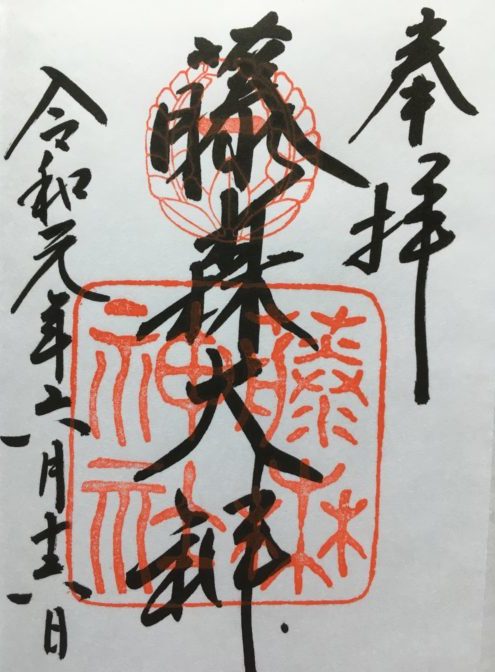 奉拝
藤森大神
藤森神社
令和元年六月十六日